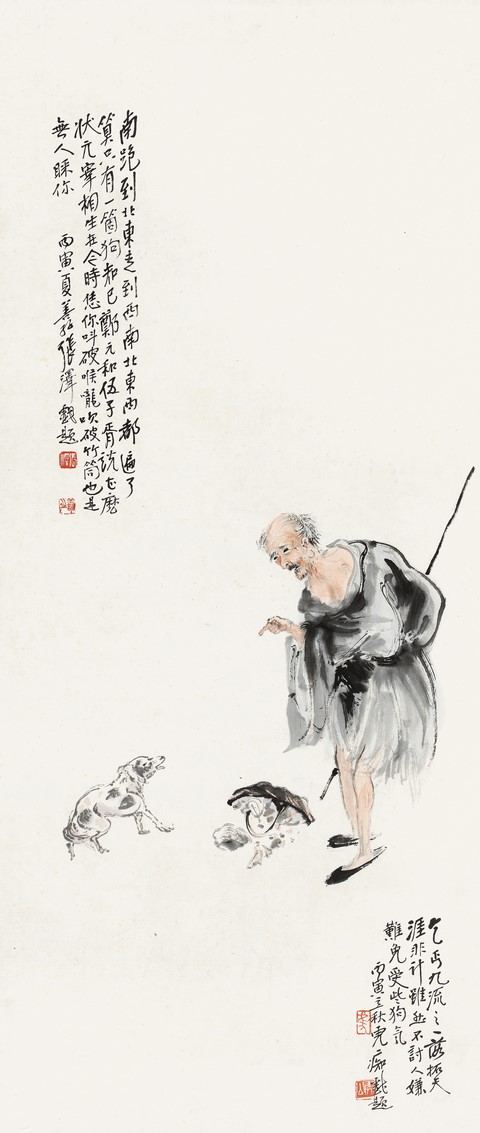 南跑到北東走到西南北東西都遍了
算只有一箇狗知己鄭元和伍子胥說甚麼
状元宰相生在今時恁你叫破喉嚨吹破竹筒也是
無人睬你 丙寅夏善孖張澤戲題
乞丐九流之一落拓天
涯非計雖然不討人嫌
難免受些狗氣
丙寅立秋虎癡戲題